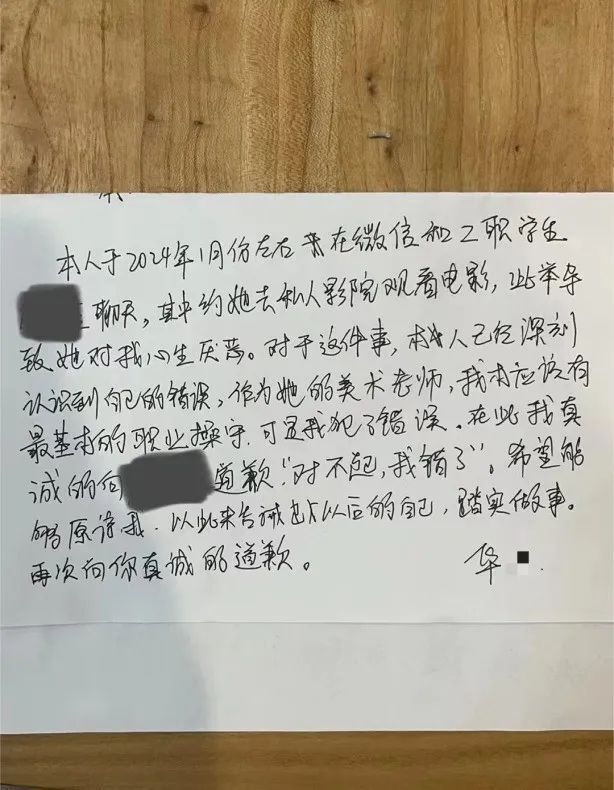 本人于2024年1月份左右来在微信和工职学生
聊天，其中约她去私人影院观看电影，此举导
致她对我心生厌恶。对于这件事，本人已经深刻
认识到自己的错误，作为她的美术老师，我本应该有
最基本的职业操守，可是我犯了错误。在此我真
诚的向道歉“对不起，我错了”。希望能
够原谅我，以此来告诫以后的自己，踏实做事。
再次向你真诚的道歉。
华